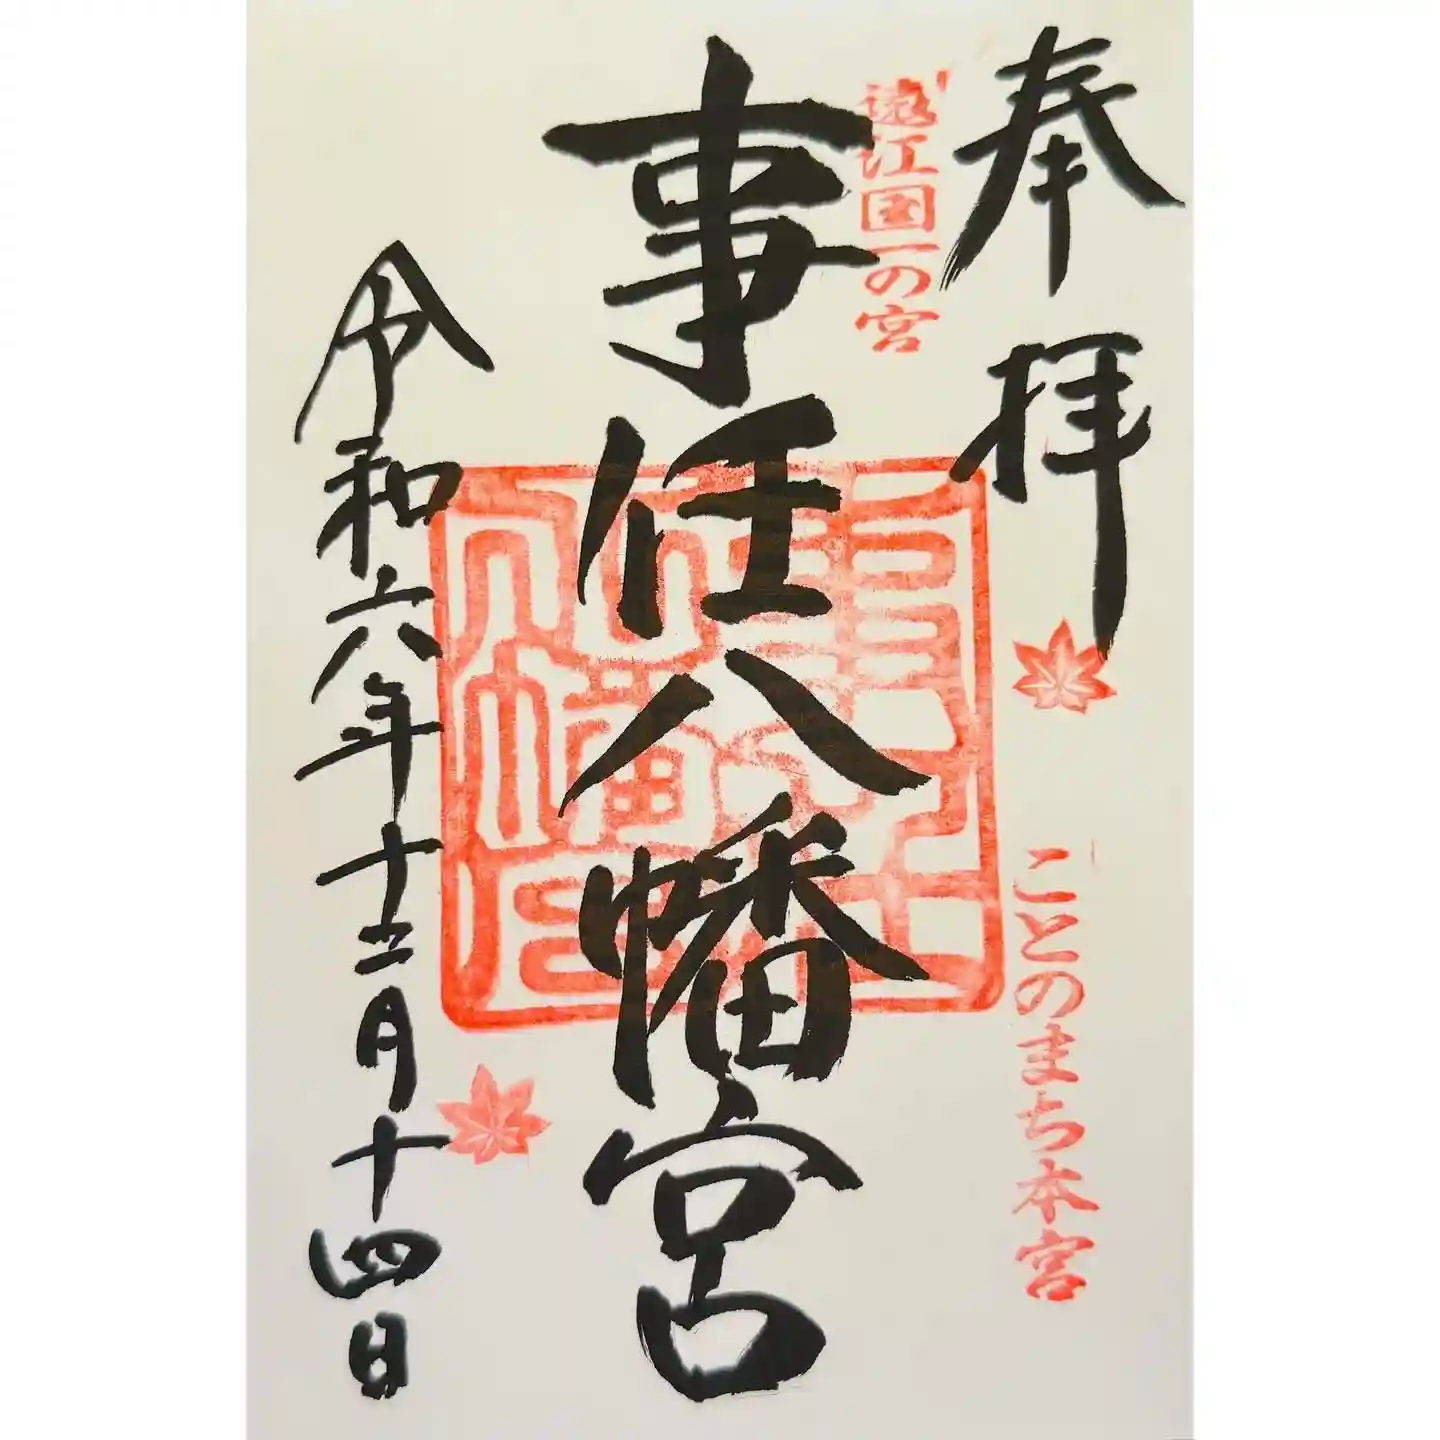 奉拝
遠江国一の宮
ことのまち本宮
事任八幡宮
令和六年十二月十四日